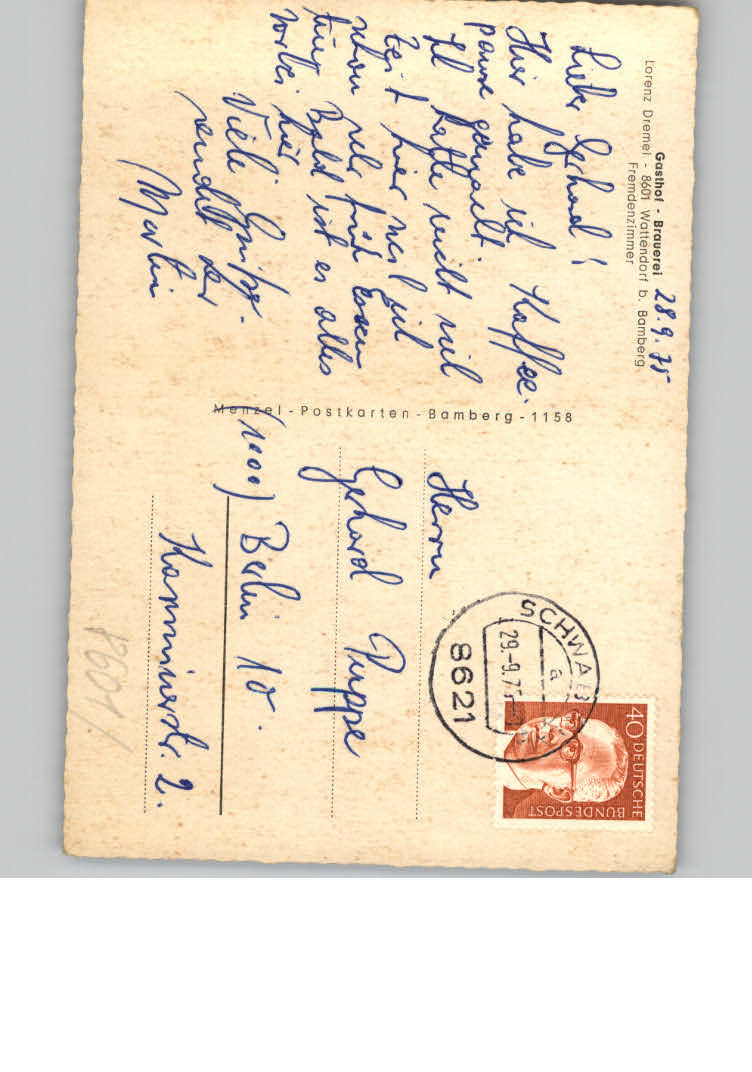 Gasthof - Brauerei
Lorenz Dremel - 8601 Wattendorf b. Bamberg
Fremdenzimmer
28.9.75
Lieber Gerhard!
Hier habe ich Kaffee-
pause gemacht.
Ich hatte nicht viel
Zeit hier weil ich
schon sehr früh
Bald ist es alles
vorbei hier
Viele Grüße
sendet der
Martin
Menzel - Postkarten - Bamberg - 1158
Herrn
Gerhard Puppe
(1000) Berlin 10.
Kamminerstr. 2.
SCHWAB
a
29.-9.75
8621
40 DEUTSCHE
BUNDESPOST
8601